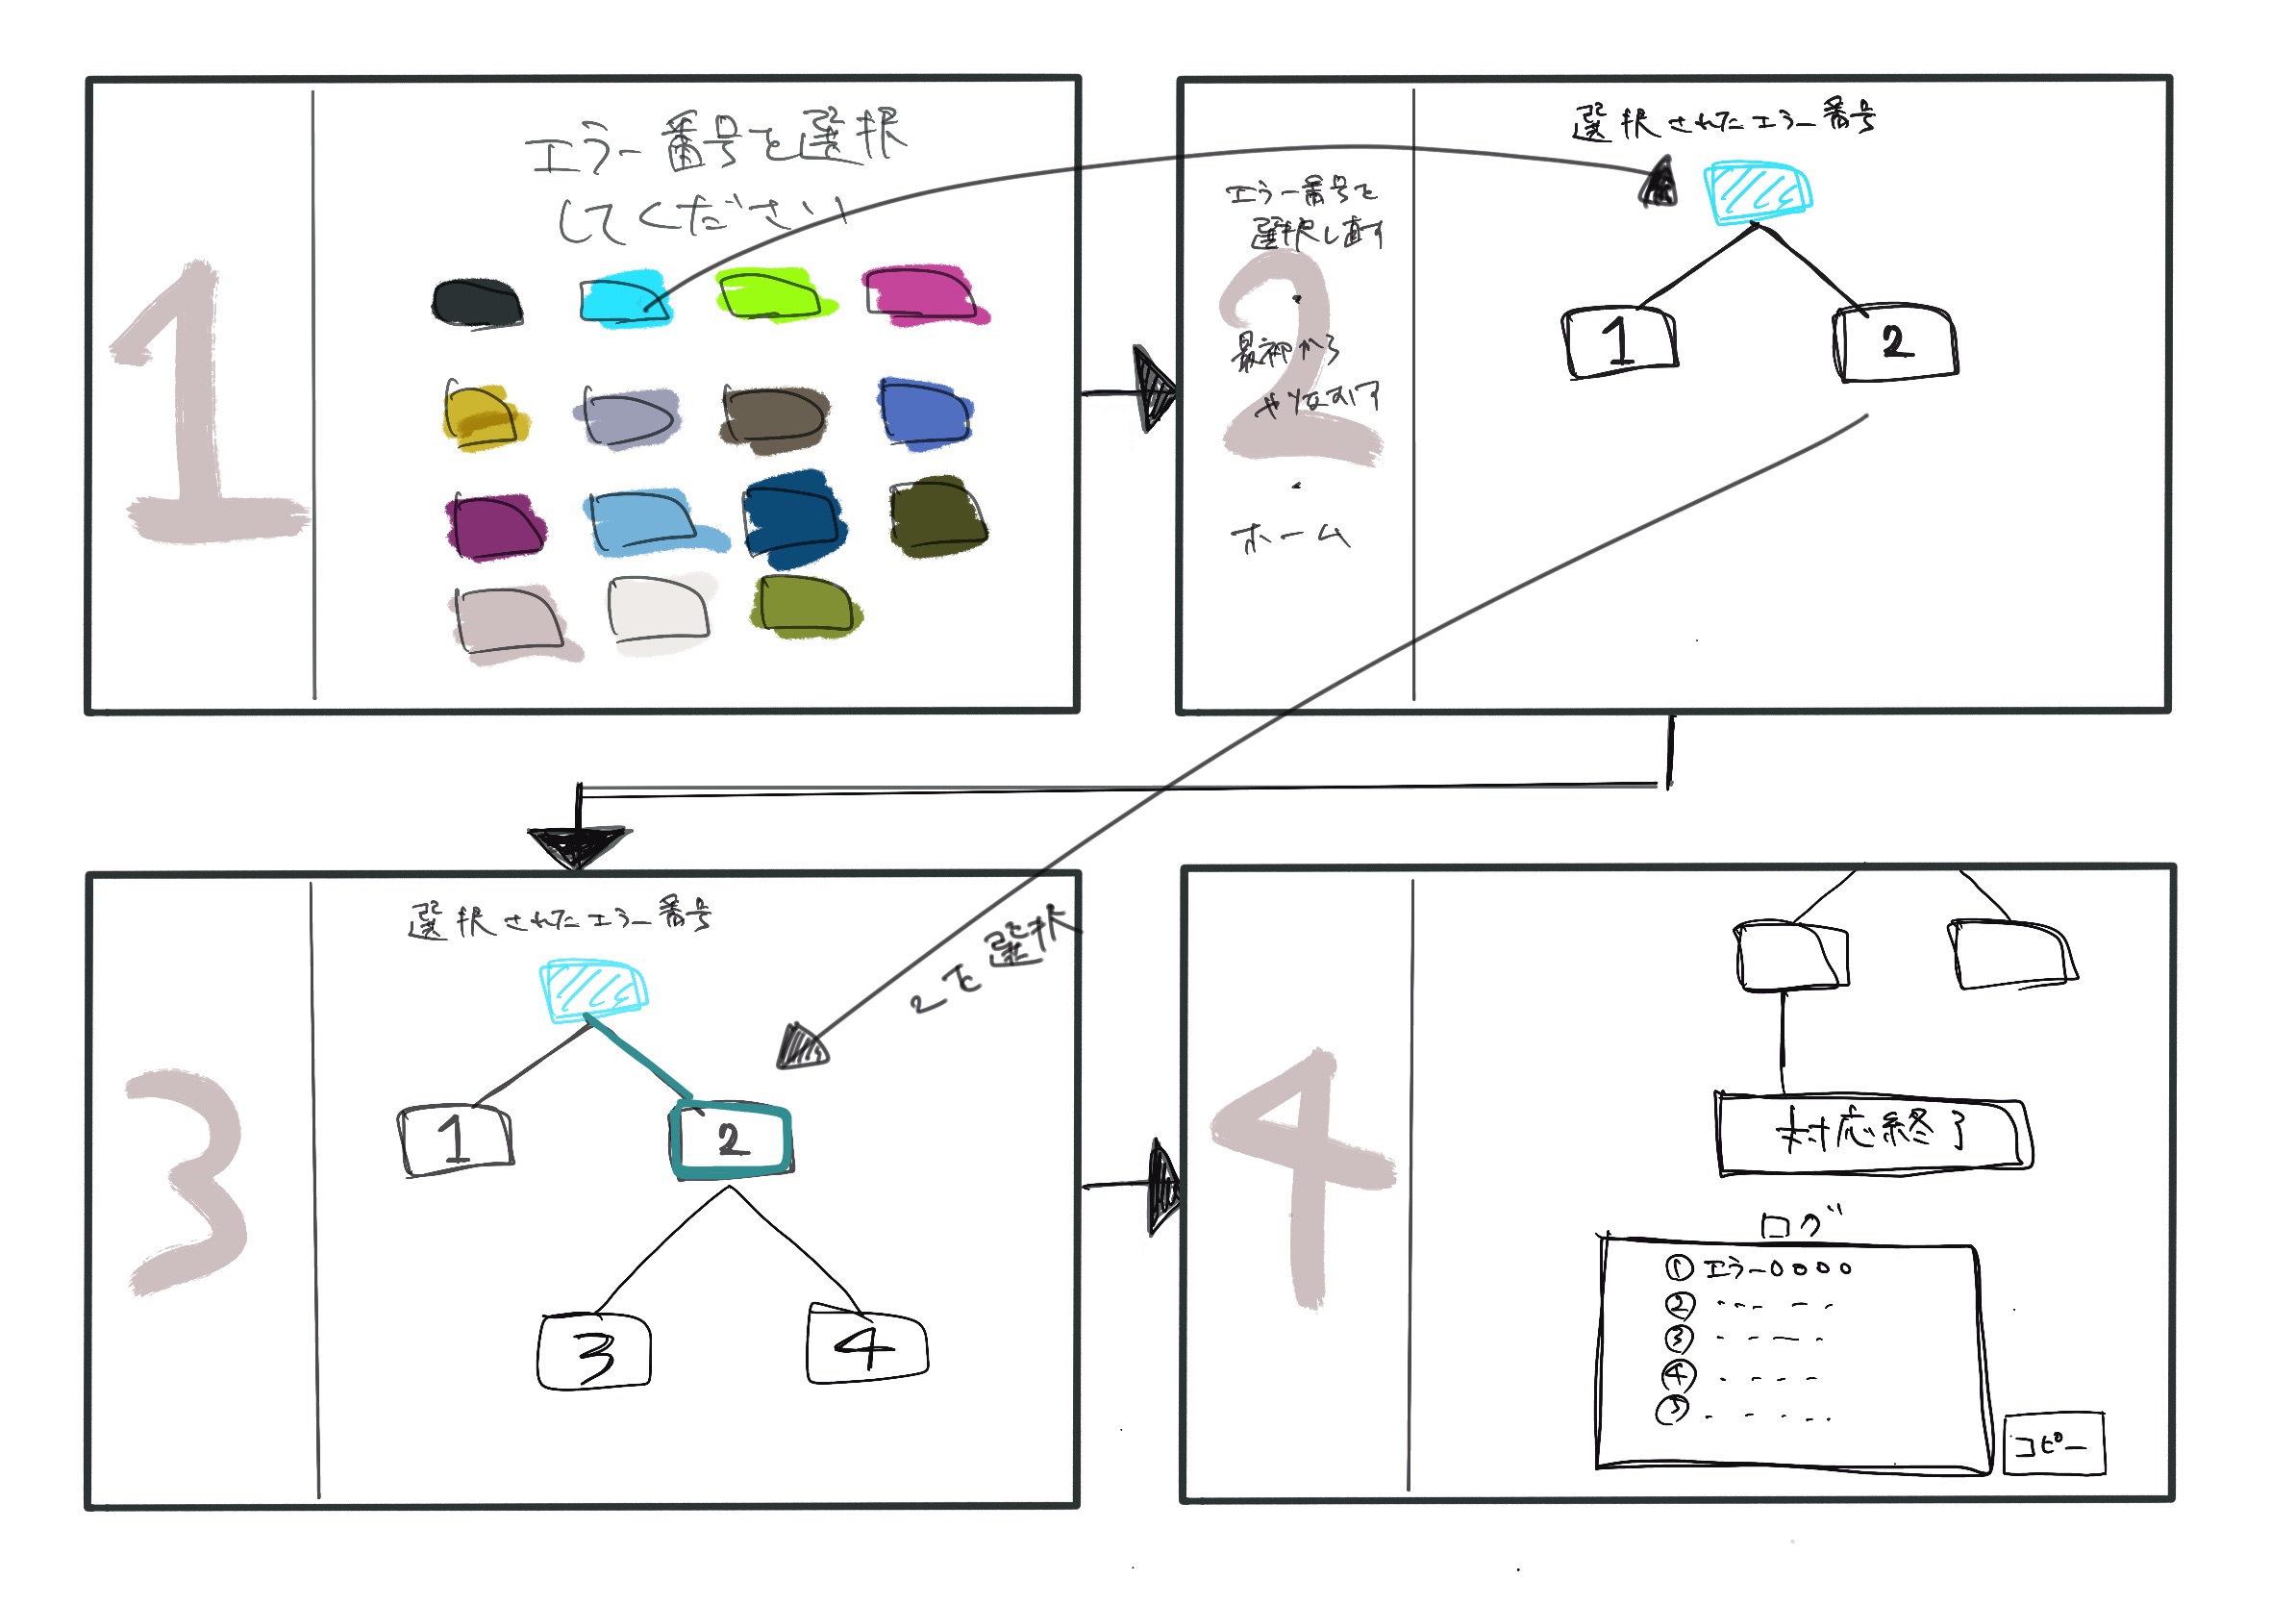 1
エラー番号を選択
してください
2
エラー番号を
選択し直す
・
最初から
やりなおす
・
ホーム
選択されたエラー番号
1
2
3
選択されたエラー番号
1
2
3
4
2を選択
4
対応終了
ログ
① エラー0000
②
③
④
⑤
コピー